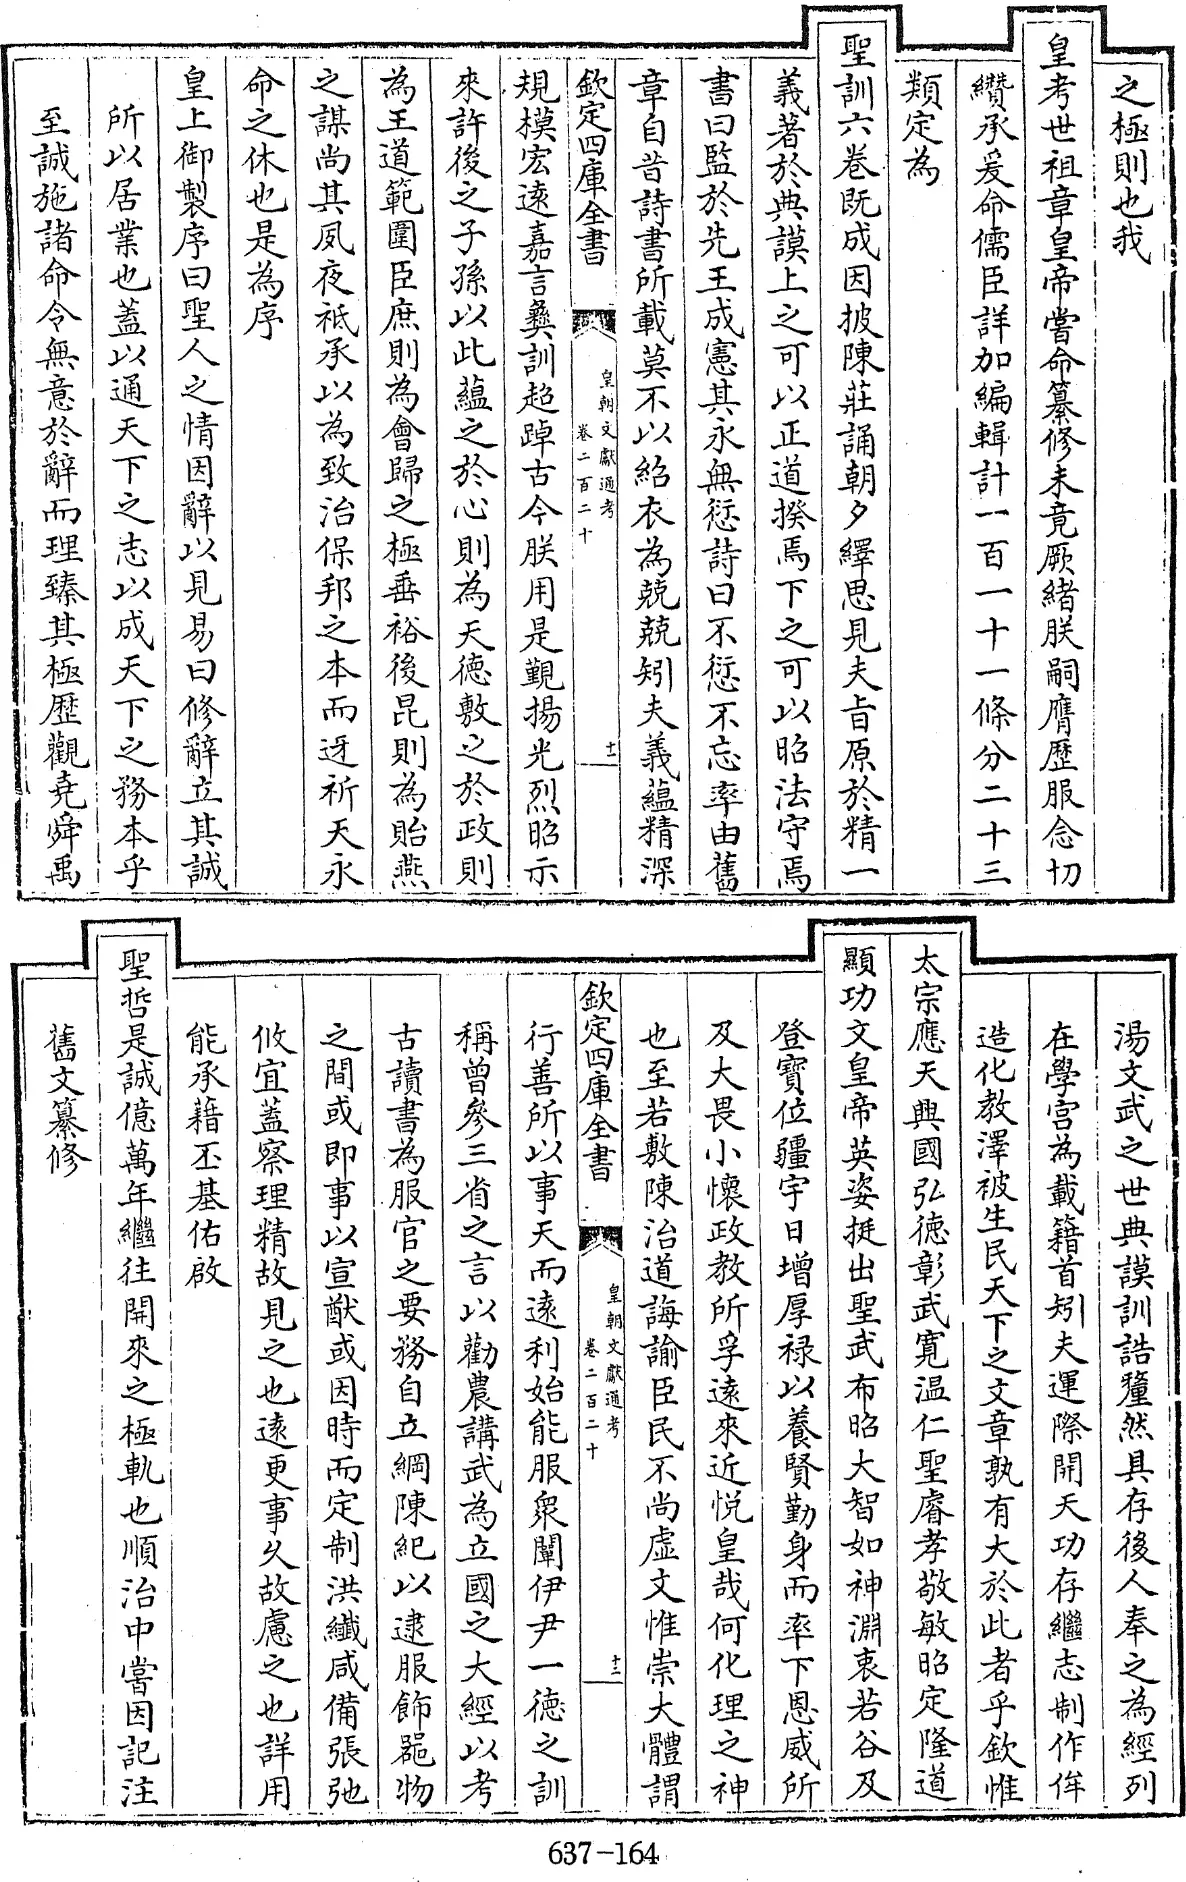 之極則也我
皇考世祖章皇帝嘗命纂修未竟厥緒朕嗣膺歷服念切
纘承爰命儒臣詳加編輯計一百一十一條分二十三
類定為
聖訓六卷既成因披陳莊誦朝夕繹思見夫旨原於精一
義著於典謨上之可以正道揆焉下之可以昭法守焉
書曰監於先王成憲其永無愆詩曰不愆不忘率由舊
章自昔詩書所載莫不以紹衣為兢兢矧夫義蘊精深
欽定四庫全書
皇朝文獻通考
卷二百二十
十一
規模宏遠嘉言彝訓超踔古今朕用是覲揚光烈昭示
來許後之子孫以此蘊之於心則為天德敷之於政則
為王道範圍臣庶則為會歸之極垂裕後昆則為貽燕
之謀尚其夙夜祗承以為致治保邦之本而迓祈天永
命之休也是為序
皇上御製序曰聖人之情因辭以見易曰修辭立其誠
所以居業也蓋以通天下之志以成天下之務本乎
至誠施諸命令無意於辭而理臻其極歷觀堯舜禹
湯文武之世典謨訓誥釐然具存後人奉之為經列
在學宮為載籍首矧夫運際開天功存繼志制作侔
造化教澤被生民天下之文章孰有大於此者乎欽惟
太宗應天興國弘德彰武寬温仁聖睿孝敬敏昭定隆道
顯功文皇帝英姿挺出聖武布昭大智如神淵衷若谷及
登寶位疆宇日增厚祿以養賢勤身而率下恩威所
及大畏小懷政教所孚遠來近悅皇哉何化理之神
也至若敷陳治道誨諭臣民不尚虛文惟崇大體謂
欽定四庫全書
皇朝文獻通考
卷二百二十
十二
行善所以事天而遠利始能服衆闡伊尹一德之訓
稱曾參三省之言以勸農講武為立國之大經以考
古讀書為服官之要務自立綱陳紀以逮服飾器物
之間或即事以宣猷或因時而定制洪纖咸備張弛
攸宜蓋察理精故見之也遠更事久故慮之也詳用
能承藉丕基佑啟
聖哲是誠億萬年繼往開來之極軌也順治中嘗因記注
舊文纂修
637-164